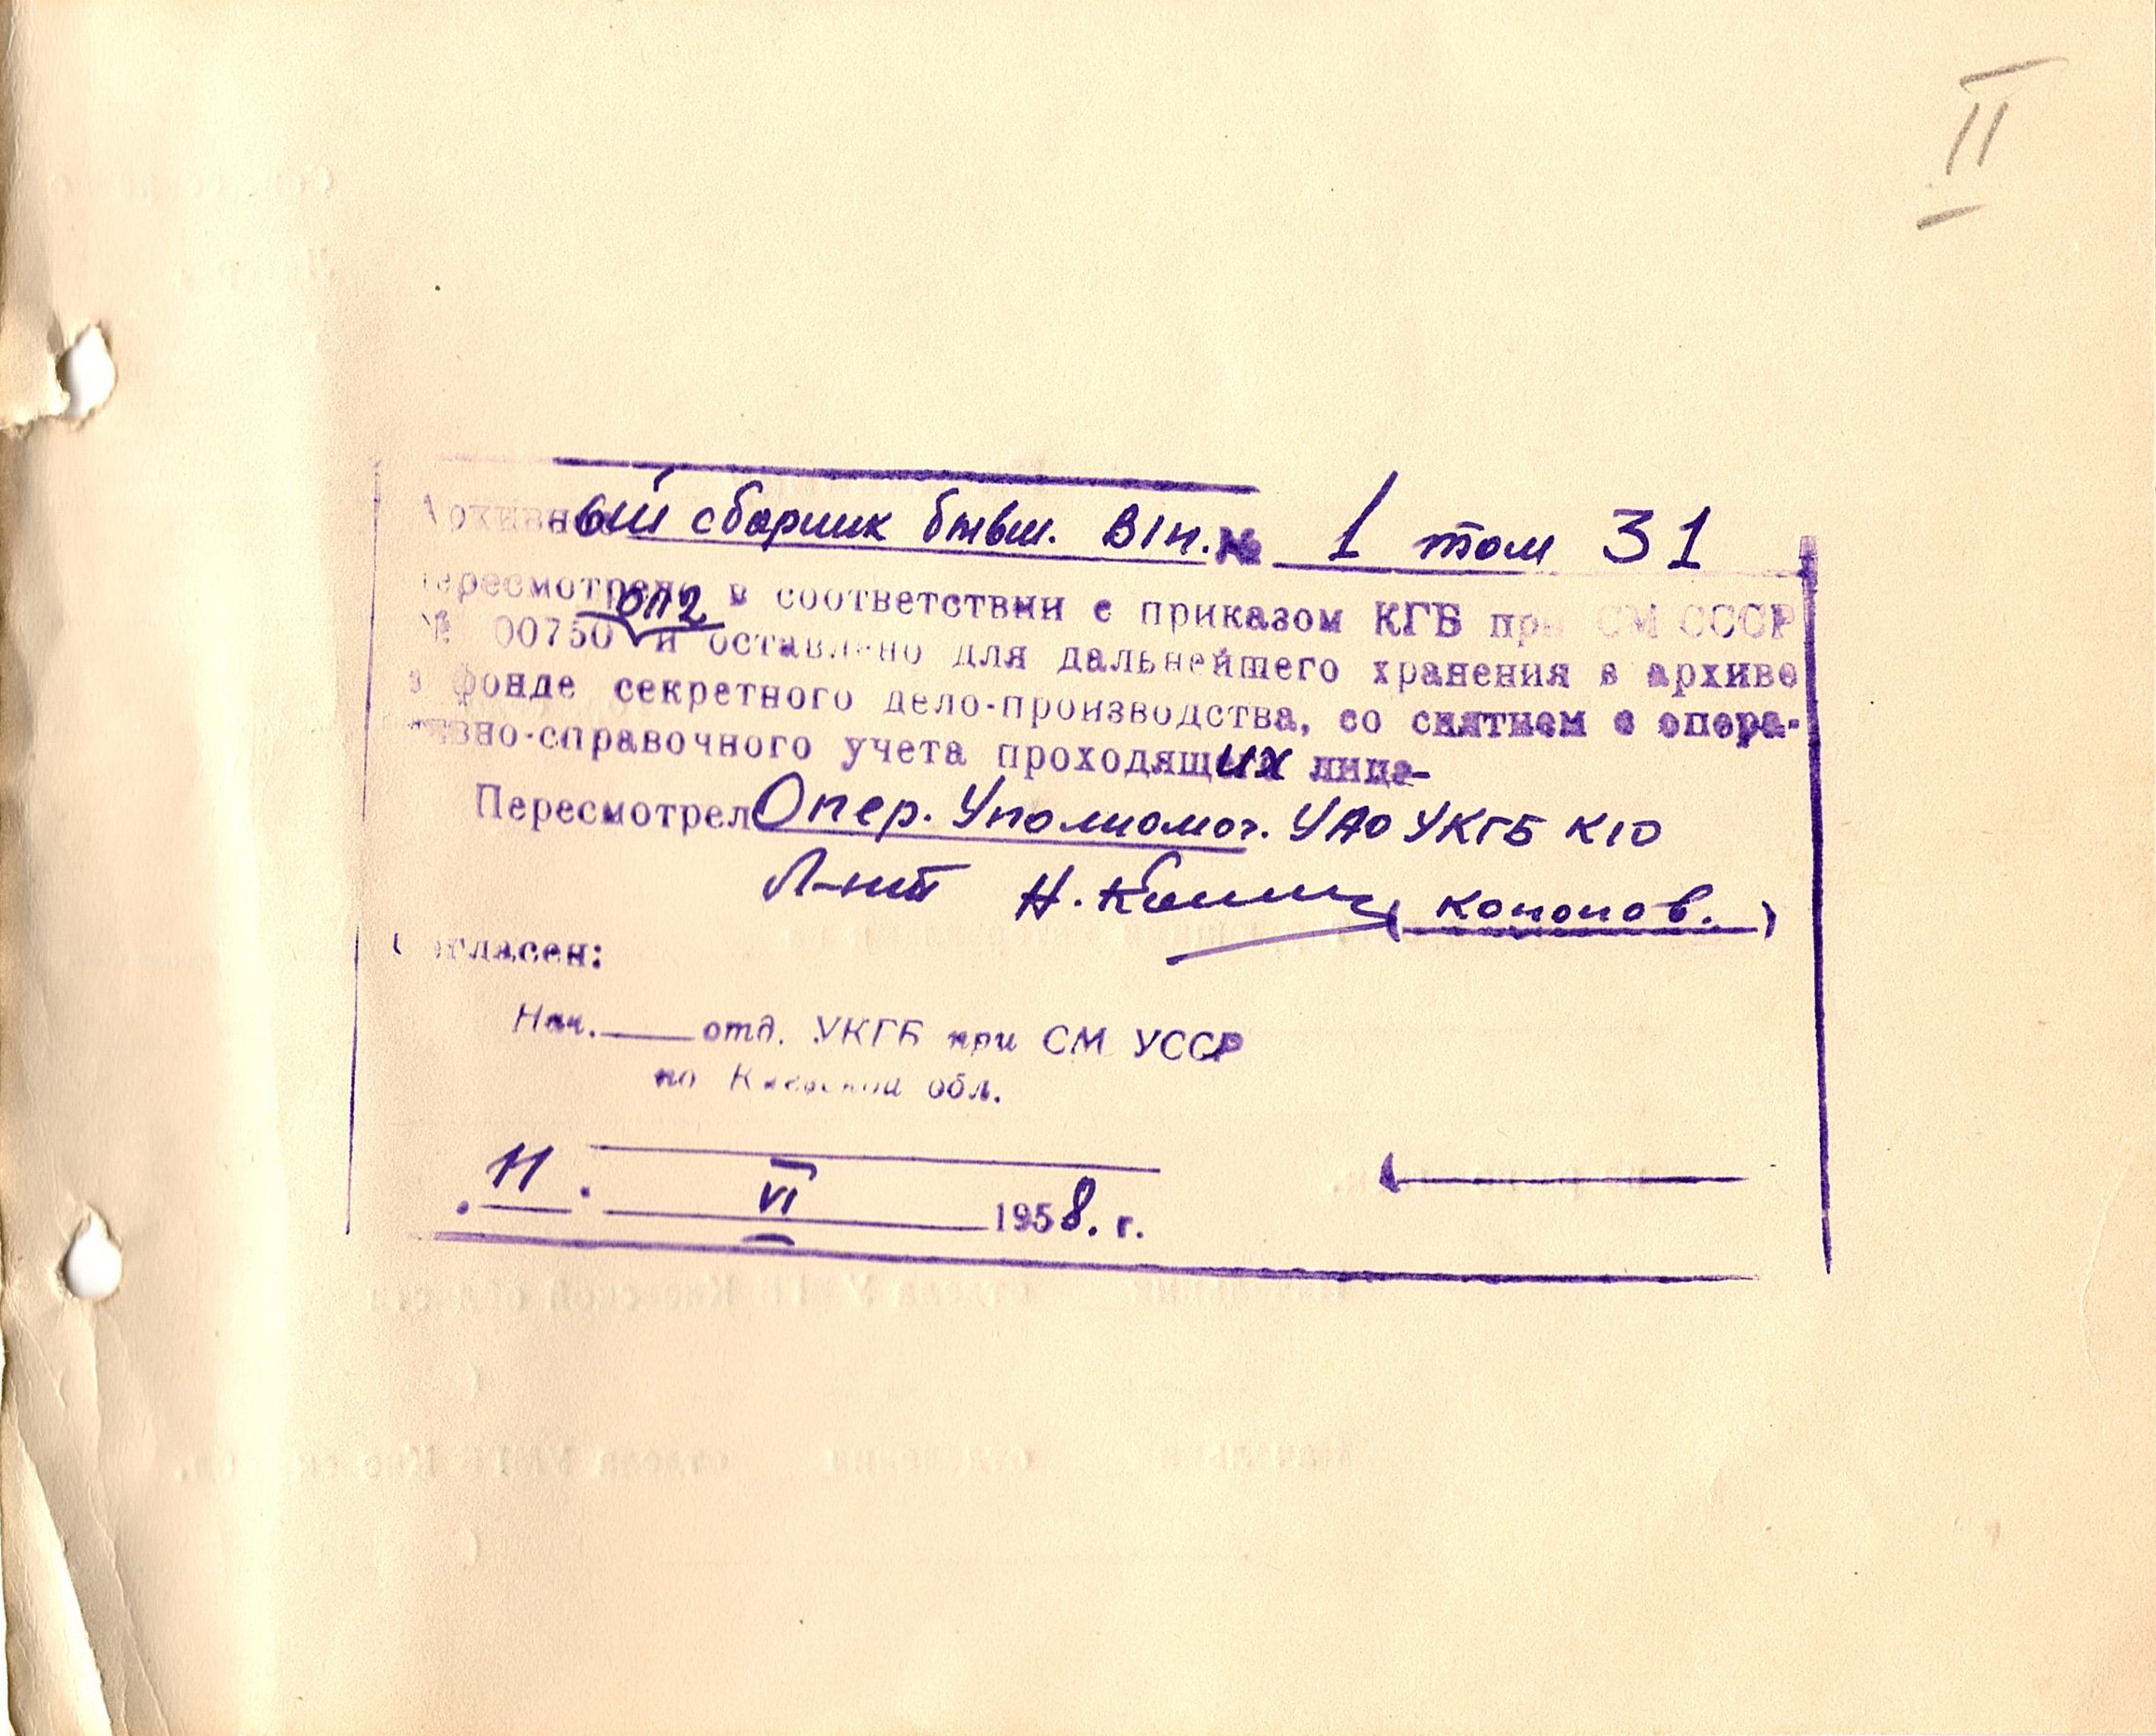 II
Архивный сборник бывш. В/п. № 1 том 31
пересмотрено в соответствии с приказом КГБ при СМ СССР
ОП2
№ 00750 и оставлено для дальнейшего хранения в архиве
в фонде секретного дело-производства, со снятием с опера-
тивно-справочного учета проходящих лиц
Пересмотрел Опер. Уполномог. УАО УКГБ К/О
Л-нт Н. (Кононов.)
Согласен:
Нач. ____ отд. УКГБ при СМ УССР
по Киевской обл.
"11" VI 1958. г.